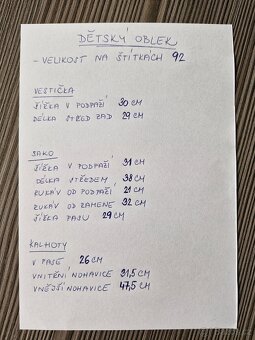 DĚTSKÝ OBLEK
- VELIKOST NA ŠTÍTKÁCH 92
VESTIČKA
ŠÍŘKA V PODPAŽÍ 30 CM
DÉLKA STŘED ZAD 29 CM
SAKO
ŠÍŘKA V PODPAŽÍ 31 CM
DÉLKA STŘEDEM 38 CM
RUKÁV OD PODPAŽÍ 21 CM
RUKÁV OD RAMENE 32 CM
ŠÍŘKA PASU 29 CM
KALHOTY
V PASE 26 CM
VNITŘNÍ NOHAVICE 31,5 CM
VNĚJŠÍ NOHAVICE 47,5 CM